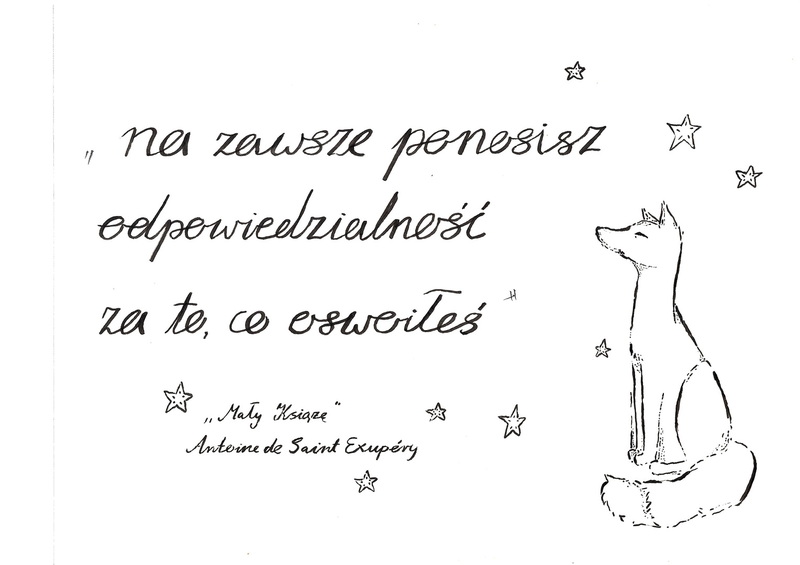 „ na zawsze ponosisz
odpowiedzialność
za to, co oswoiłeś "
„Mały Książę"
Antoine de Saint Exupéry